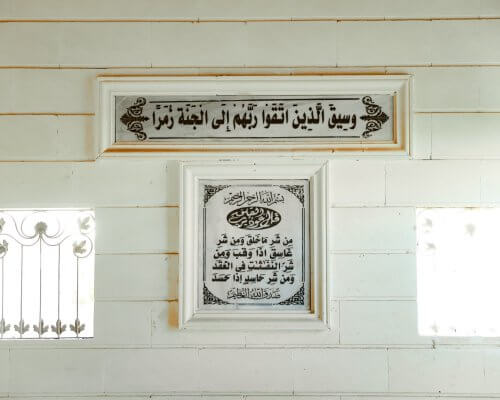 وَسِيقَ الَّذِينَ اتَّقَوْا رَبَّهُمْ إِلَى الْجَنَّةِ زُمَرًا
بسم الله الرحمن الرحيم
قل اعوذ برب الفلق
مِن شَر مَا خَلَقَ وَمِن شَر
غَاسِقٍ اِذَا وَقَبَ وَمِن
شَرِّ النَّفّٰثٰتِ فِي الْعُقَدِ
وَمِن شَرِّ حَاسِدٍ اِذَا حَسَدَ
صدق الله العظيم